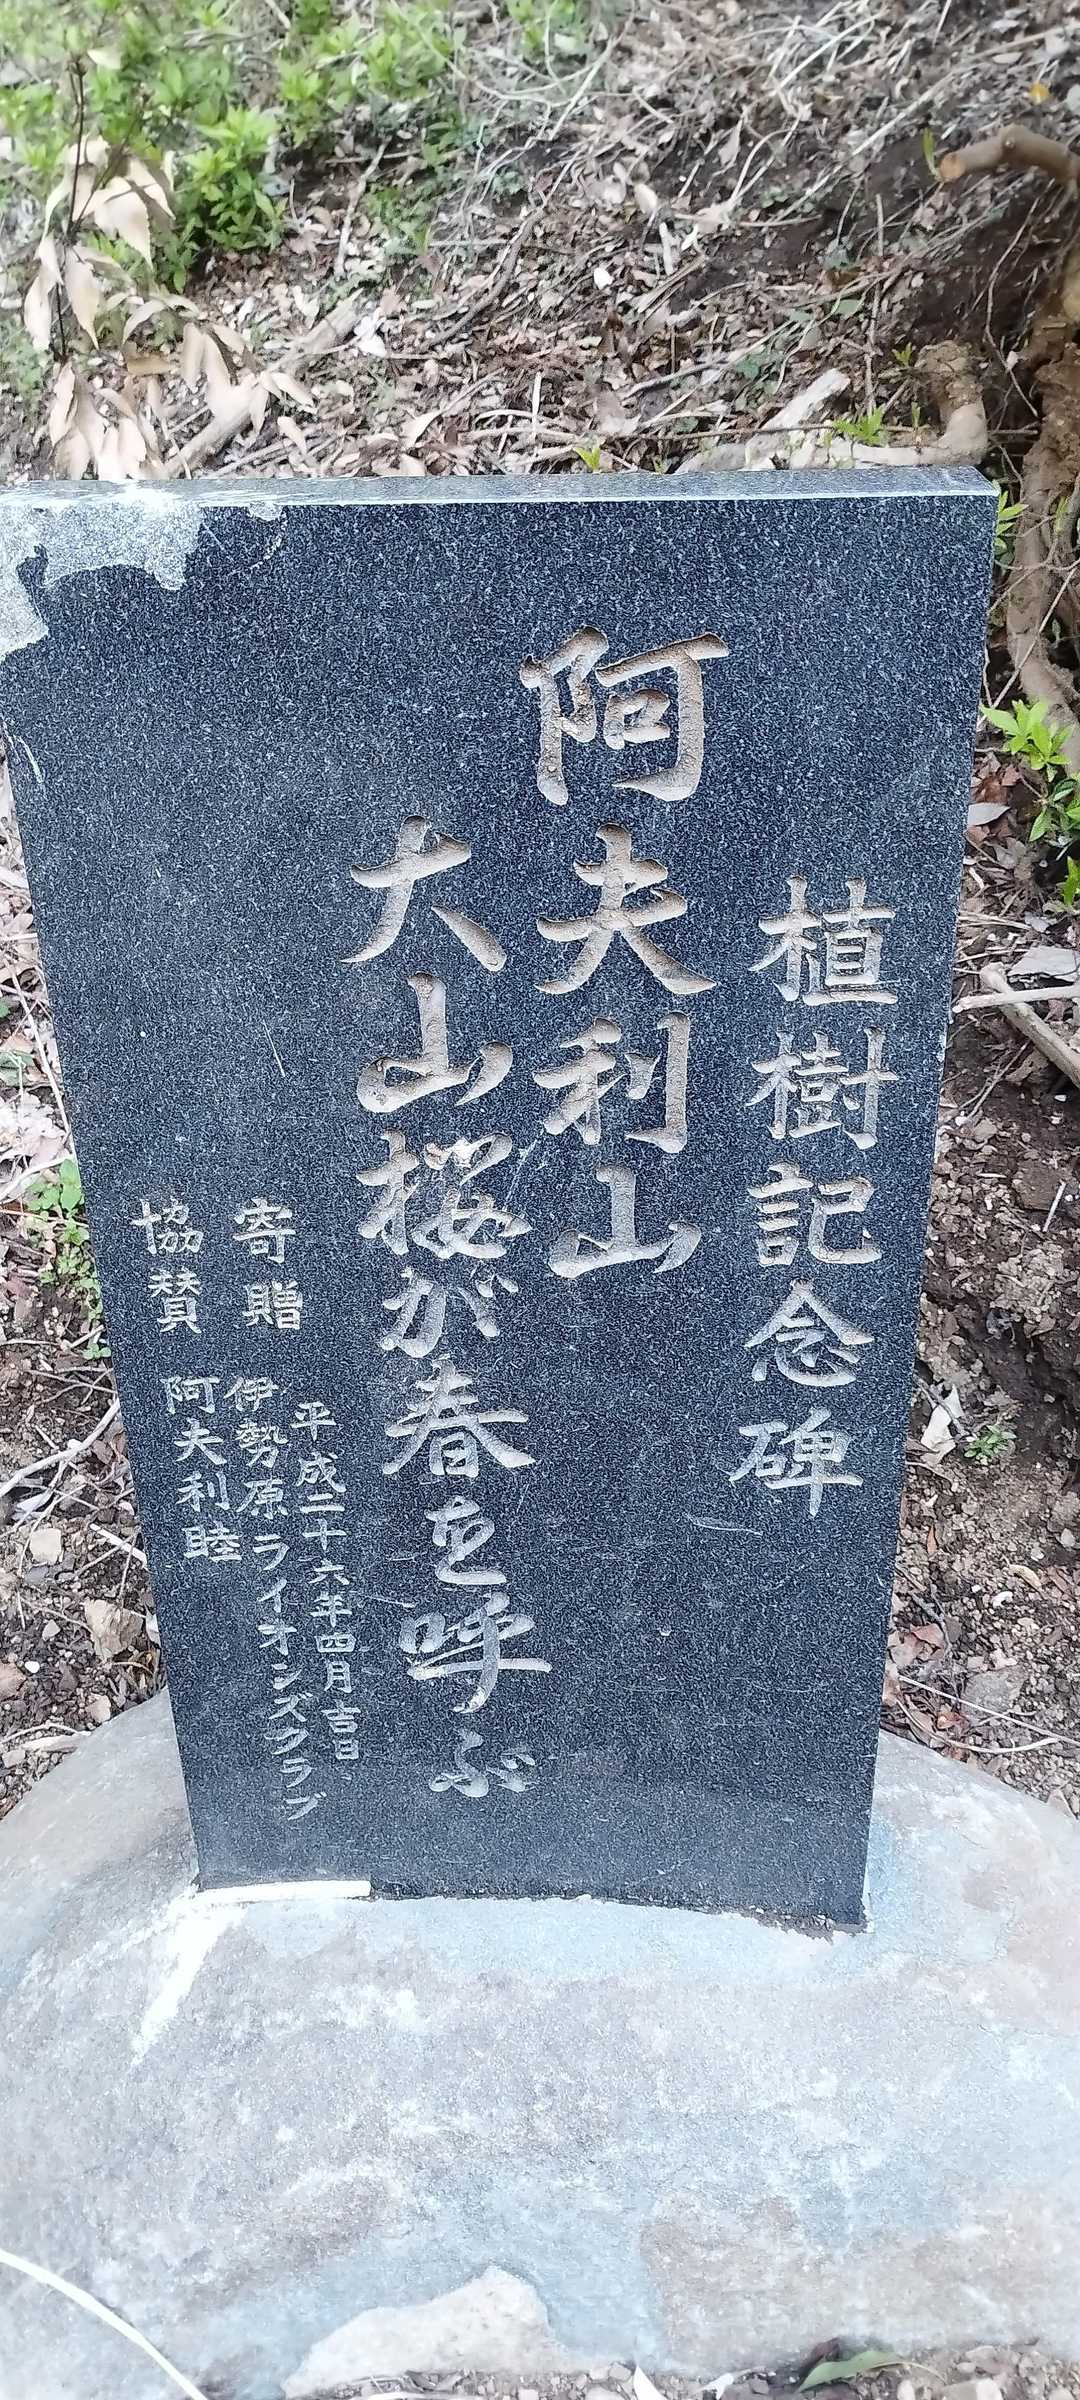 植樹記念碑
阿夫利山
大山桜が春を呼ぶ
平成二十六年四月吉日
寄贈 伊勢原ライオンズクラブ
協賛 阿夫利睦